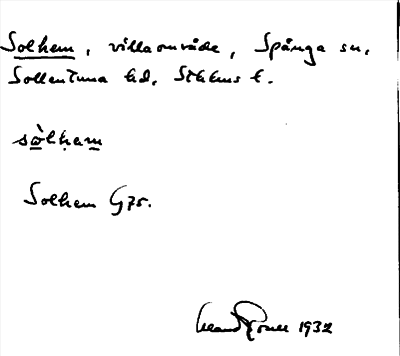 Solhem, villaområde, Spånga sn,
Sollentuna hd, Sthlms l.
sòlham
Solhem G75.
1932